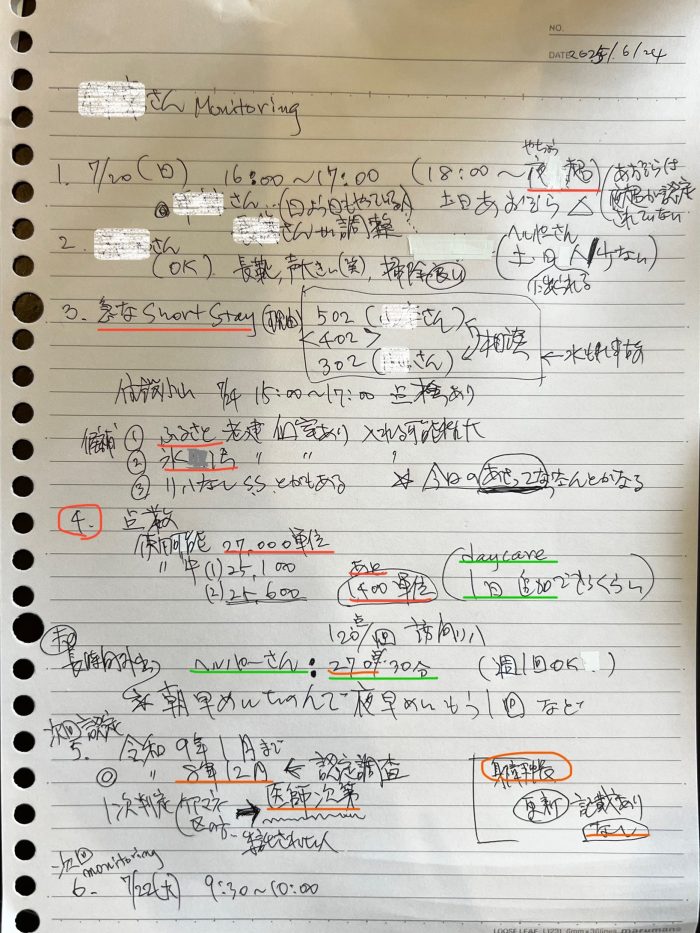 NO.
DATE 2025/6/24
さん Monitoring
1. 7/20(日) 16:00〜17:00 (18:00〜夜 想)
やちよう
◎ さん…(日より日もやっている人 土日あおぞら△
(あおぞらは 夜間が設定 されていない
さんが調整
2. さん (OK) 長靴, 声大きい(笑), 掃除良い
(ヘルパーさん 土日 人/少ない) に決められる
3. 急なShort Stay 理由
502 ( さん)
<402> 相談
302 ( さん)
←水もれ事故
7/24 15:00〜17:00 点検あり
候補 ① ふるさと 老健 個室あり 入れる可能性大
② 氷 号 〃 〃 〃
③ リハなし S.S. とかもある ☆ 今日の あせってな なんとかなる
4. 点数
使用可能 27,000単位
〃 中 (1) 25,100
(2) 25,600
あと 1400単位
(daycare 1日追加できるくらい)
120点/回 訪問リハ
長時間外出 ヘルパーさん : 270点 30分 (週1回OK )
☆ 朝早めにたのんで 夜早めにもう1回 など
次回認定
5. 令和9年1月まで
◎ 〃 8年12月 ← 認定調査
1次判定 → 医師次第
身障手段 更新 記載あり なし
次回 monitoring
6. 7/22(火) 9:30〜10:00
LOOSE LEAF L1231 6mm×36lines maruman